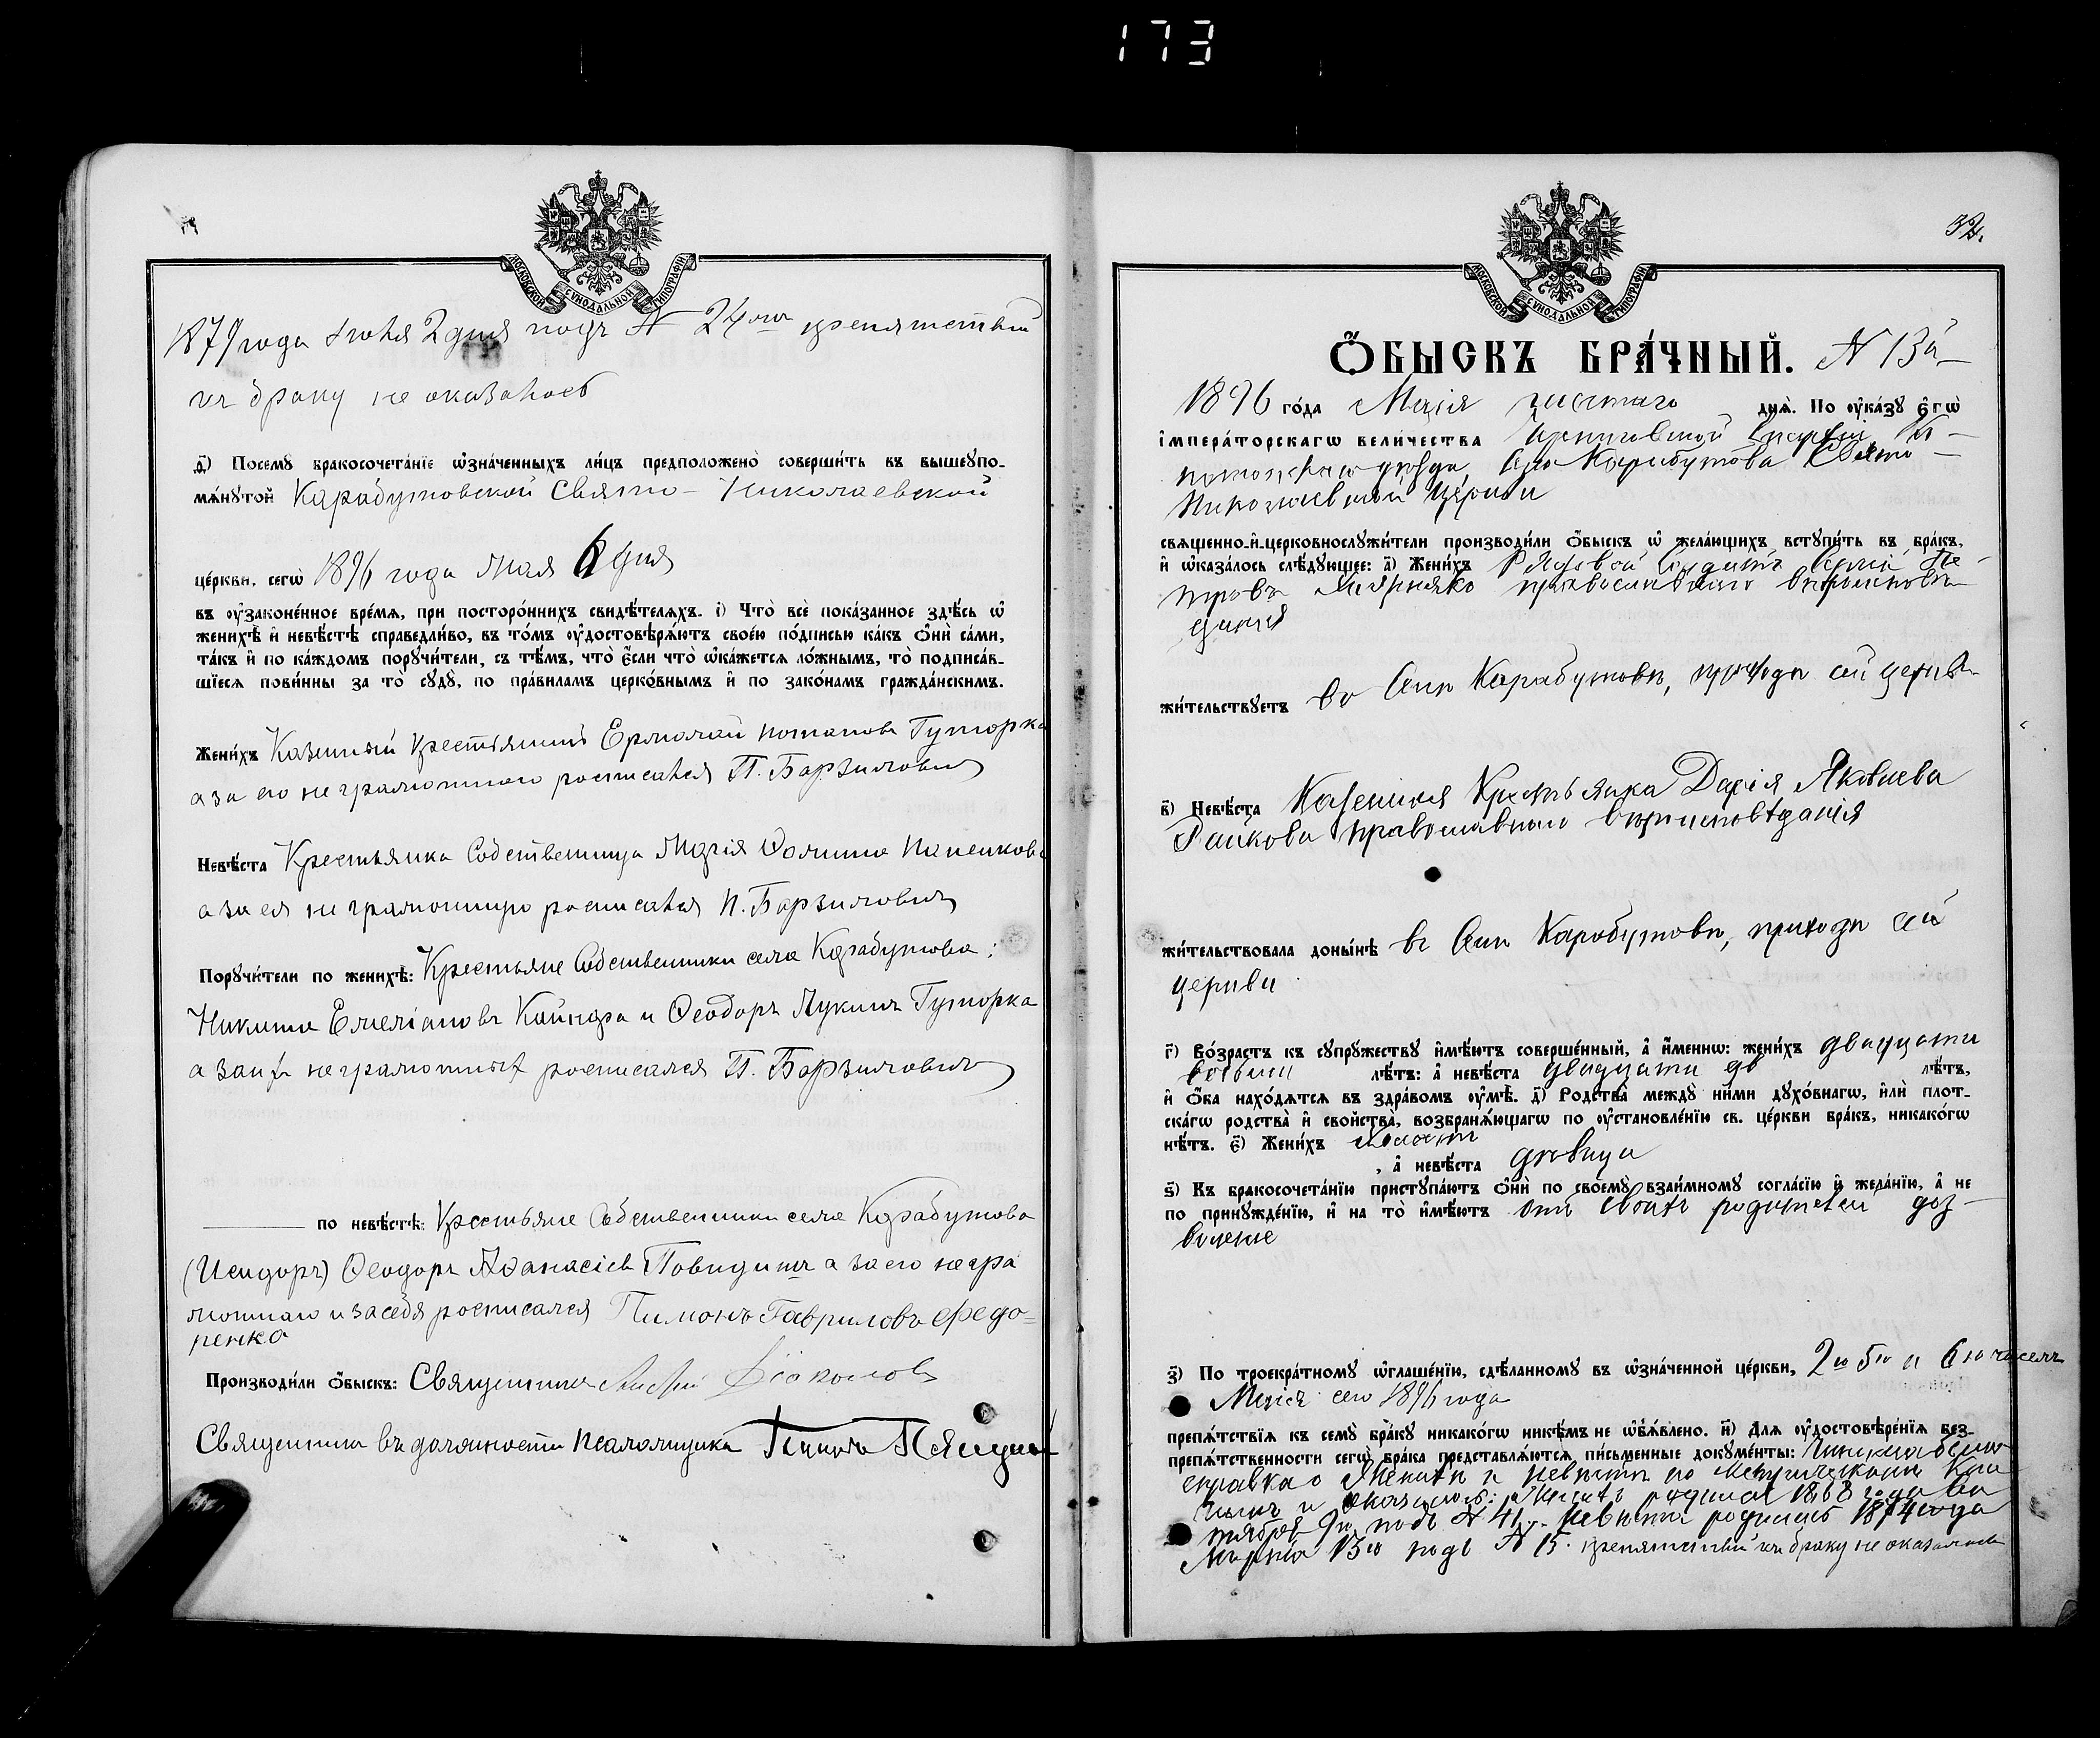 173
МОСКОВСКОЙ СѴНОДАЛЬНОЙ ТИПОГРАФІИ
1879 года Июня 2 дня подъ № 24 препятствій
къ браку не оказалось
ѳ҃) Посемꙋ бракосочета́нїе ѡ҆зна́ченныхъ ли́цъ предположено̀ соверши́ть въ вышеꙋпо-
мѧ́нꙋтой Карабутовской Свято-Николаевской
це́ркви, сегѡ̀ 1896 года Мая 6 дня
въ ᲂу҆законе́нное вре́мѧ, при посторо́ннихъ свидѣ́телѧхъ. і҃) Что̀ всѐ пока́занное здѣ́сь ѡ҆
женихѣ̀ и҆ невѣ́стѣ справедли́во, въ то́мъ ᲂу҆достовѣрѧ́ютъ свое́ю по́дписью ка́къ ѻ҆нѝ са́ми,
та́къ и҆ по ка́ждомъ порꙋчи́тели, съ тѣ́мъ, что̀ є҆́сли что̀ ѡ҆ка́жетсѧ ло́жнымъ, то̀ подписа́в-
шїесѧ пови́нны за то̀ сꙋдꙋ̀, по пра́виламъ церко́внымъ и҆ по зако́намъ гражда́нскимъ.
Жени́хъ Казенный крестьянинъ Ермолай Потаповъ Гуторка
а за его неграмотного росписался П. Барзиловичъ
Невѣ́ста Крестьянка Собственница Марія Папенкова
а за ея неграмотную росписался П. Барзиловичъ
Порꙋчи́тели по женихѣ̀: Крестьяне Собственники села Карабутова:
Никита Емеліановъ Койнора и Ѳеодоръ Лукинъ Гуторка
а за ихъ неграмотныхъ росписался П. Барзиловичъ
по невѣ́стѣ: Крестьяне Собственники села Карабутова
(Исидоръ) Ѳеодоръ Аѳанасіевъ а за его негра
мотного и за себя росписался Пимонъ Гавриловъ Федо=
ренко
Производи́ли ѻ҆́быскъ: Священникъ Діаконовъ
Священникъ въ должности псаломщика
32.
МОСКОВСКОЙ СѴНОДАЛЬНОЙ ТИПОГРАФІИ
Ѻ҆́БЫСКЪ БРА́ЧНЫЙ. № 13й
1896 го́да Маія шестаго днѧ̀. По ᲂу҆ка́зꙋ є҆гѡ̀
і҆мпера́торскагѡ вели́чества Черниговской Епархіи, Ко-
нотопскаго уѣзда, села Карабутова Свято-
Николаевской Церкви
свѧще́нно-и҆-церковнослꙋжи́тели производи́ли ѻ҆́быскъ ѡ҆ жела́ющихъ встꙋпи́ть въ бра́къ,
и҆ ѡ҆каза́лось слѣ́дꙋющее: а҃) Жени́хъ Рядовой Солдатъ Пе-
тровъ православнаго вѣроисповѣ-
данія
жи́тельствꙋетъ въ Селѣ Карабутовѣ, приходѣ сей церкви
в҃) Невѣ́ста Казенная Крестьянка Дарія Яковлева
Райкова православнаго вѣроисповѣданія
жи́тельствовала доны́нѣ въ Селѣ Карабутовѣ, приходѣ сей
церкви
г҃) Во́зрастъ къ сꙋпрꙋ́жествꙋ и҆мѣ́ютъ соверше́нный, а҆ и҆́меннѡ: жени́хъ двадцати
восьми лѣ́тъ: а҆ невѣ́ста двадцати дв лѣ́тъ,
и҆ ѻ҆́ба нахо́дѧтсѧ въ здра́вомъ ᲂу҆мѣ̀. д҃) Родства̀ междꙋ̀ ни́ми дꙋхо́внагѡ, и҆лѝ плот-
ска́гѡ родства̀ и҆ свойства̀, возбранѧ́ющагѡ по ᲂу҆становле́нїю св. це́ркви бра́къ, никако́гѡ
нѣ́тъ. є҃) Жени́хъ холостъ
, а҆ невѣ́ста дѣвица
ѕ҃) Къ бракосочета́нїю пристꙋпа́ютъ ѻ҆нѝ по своемꙋ̀ взаи́мномꙋ согла́сїю и҆ жела́нїю, а҆ не
по принꙋжде́нїю, и҆ на то̀ и҆мѣ́ютъ отъ своихъ родителей доз-
воленіе
з҃) По троекра́тномꙋ ѡ҆глаше́нїю, сдѣ́ланномꙋ въ ѡ҆зна́ченной це́ркви, 2го 5го и 6го чиселъ
Маія сего 1896 года
препѧ́тствїѧ къ семꙋ̀ бра́кꙋ никако́гѡ никѣ́мъ не ѡ҆б̾ѧ́влено. и҃) Длѧ ᲂу҆достовѣре́нїѧ без-
препѧ́тственности сегѡ̀ бра́ка представлѧ́ютсѧ пи́сьменные докꙋме́нты:
справка о Женихѣ и невѣстѣ по Метрическимъ Кни
гамъ и оказалось: Женихъ родился 1868 года Ок
тября 9го подъ № 41. Невѣста родилась 1874 года
Марта 13го подъ № 15. препятствій къ браку не оказалось